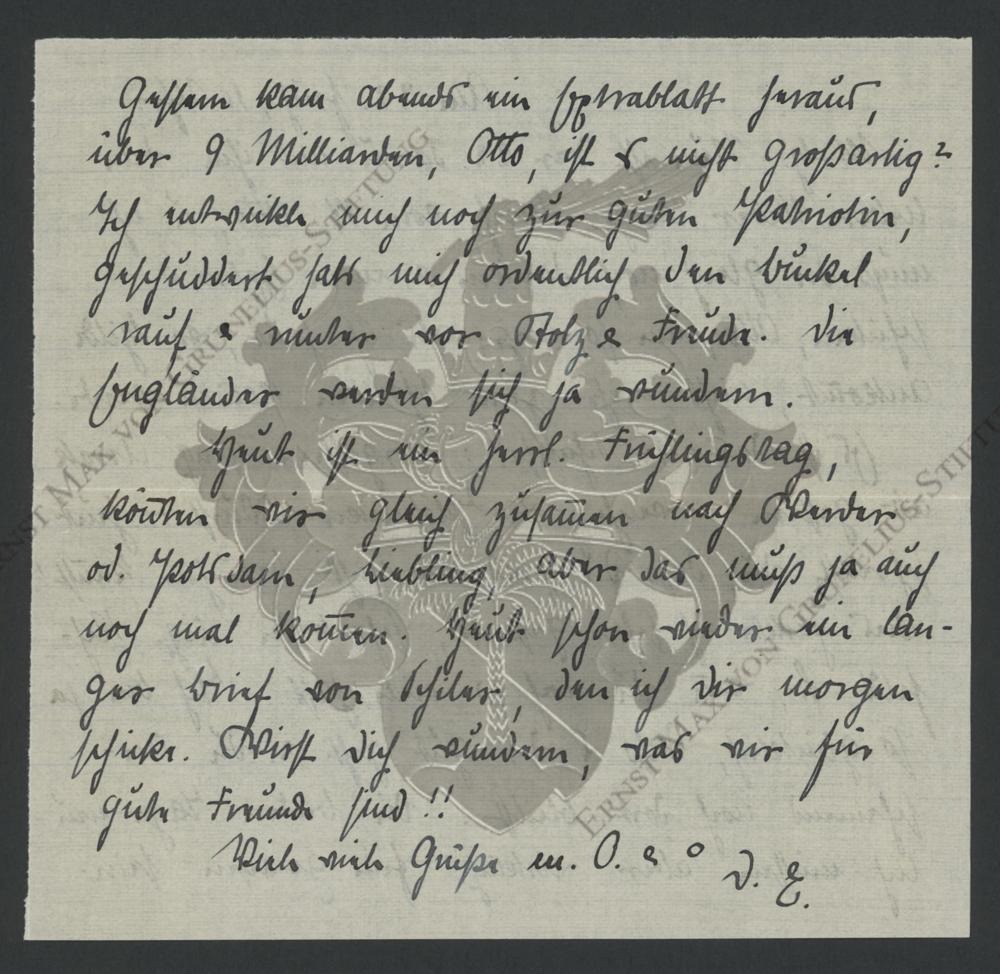 Gestern kam abends ein Extrablatt heraus,
über 9 Milliarden, Otto, ist es nicht großartig?
Ich entwickle mich noch zur guten Patriotin,
geschuddert hats mich ordentlich den Buckel
rauf & runter vor Stolz & Freude. Die
Engländer werden sich ja wundern.
Heut ist ein herrl. Frühlingstag,
kön̄ten wir gleich zusam̄en nach Werder
od. Potsdam, Liebling, aber das muß ja auch
noch mal kom̄en. Heut schon wieder ein lan-
ger Brief von Schiler, den ich dir morgen
schicke. Wirst dich wundern, was wir für
gute Freunde sind!!
Viele viele Grüße m. O. & o
D. E.
ERNST MAX VON GRUNELIUS-STIFTUNG
ERNST MAX VON GRUNELIUS-STIFTUNG